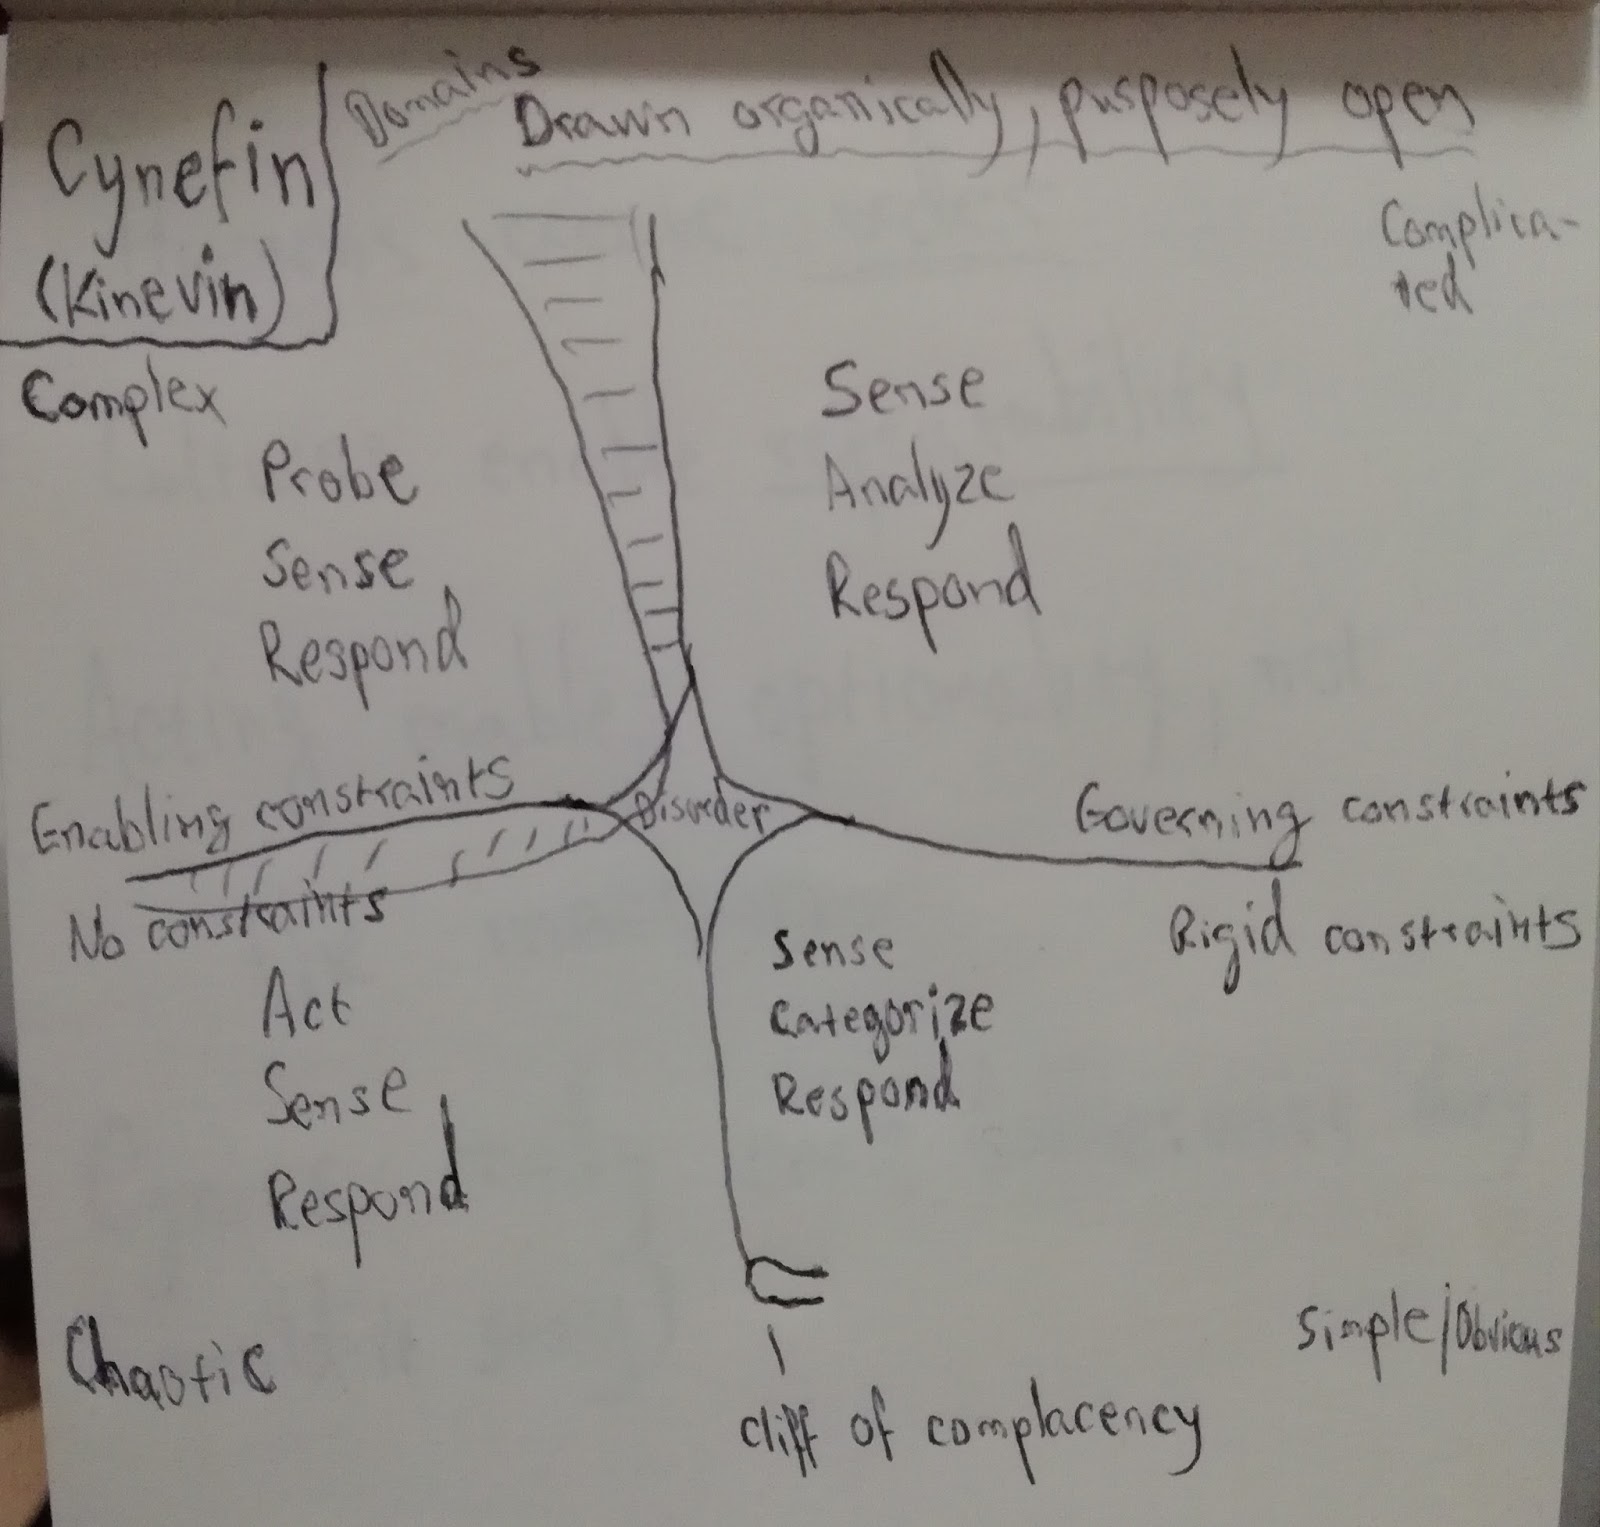 Cynefin
(Kinevin)
Domains
Drawn organically, pusposely open
Complica-
ted
Complex
Probe
Sense
Respond
Sense
Analyze
Respond
Enabling constraints
Disorder
Governing constraints
No constraints
Rigid constraints
Act
Sense
Respond
Sense
Categorize
Respond
Chaotic
Simple/Obvious
cliff of complacency